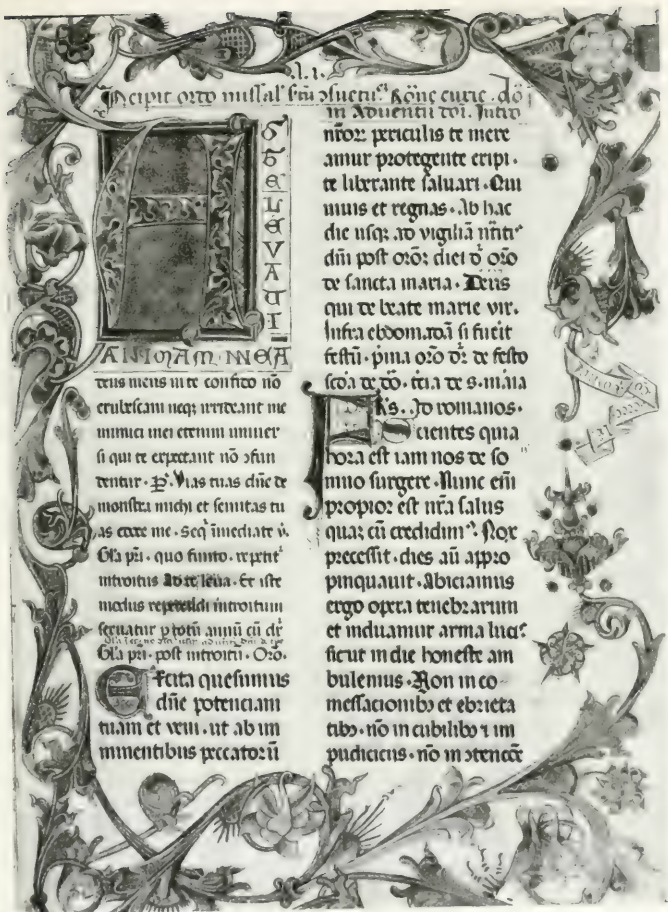 .I.1.
Incipit ordo missal' scd̄m ɔsuetu'. Rōne curie . dō
in Aduentu dn̄i. Introi
AD TE LEVAVI
ANIMAM MEĀ
deus meus in te confido nō
erubescam neqꝫ irrideant me
inimici mei etenim uniuer
si qui te expectant nō ɔfun
dentur . P̄. Vias tuas dn̄e de
monstra michi et semitas tu
as edoce me . Seq̄ īmediate v̄.
Gl'a pr̄i . quo finito . repetit'
introitus Ad te leua . Et iste
modus repetendi introitum
seruatur p totū annū cū dr̄
Gl'a pr̄i . post introitū . Orō.
Excita quesumus
dn̄e potenciam
tuam et veni . ut ab im
minentibus peccatorū
nr̄orꝫ periculis te mere
amur protegente eripi .
te liberante saluari . Qui
uiuis et regnas . Ab hac
die usqꝫ ad vigiliā
dn̄i post orōꝫ diei d̄ orō
de sancta maria . Deus
qui de beate marie vir.
Infra ebdomadā si fu'it
festū . p̄ma orō dr̄ de festo
scda de dō . t'cia de s . m̄ia
Ad romanos .
Scientes quia
hora est iam nos de so
mno surgere . Nunc eni
propior est nr̄a salus
quaꝫ cū credidim' . Nox
precessit . dies aū appro
pinquauit . Abiciamus
ergo opera tenebrarum
et induamur arma luci'
sicut in die honeste am
bulemus . Non in co
messacionibꝫ et ebrieta
tibꝫ . nō in cubilibꝫ ⁊ im
pudiciciis . nō in ɔtencōe